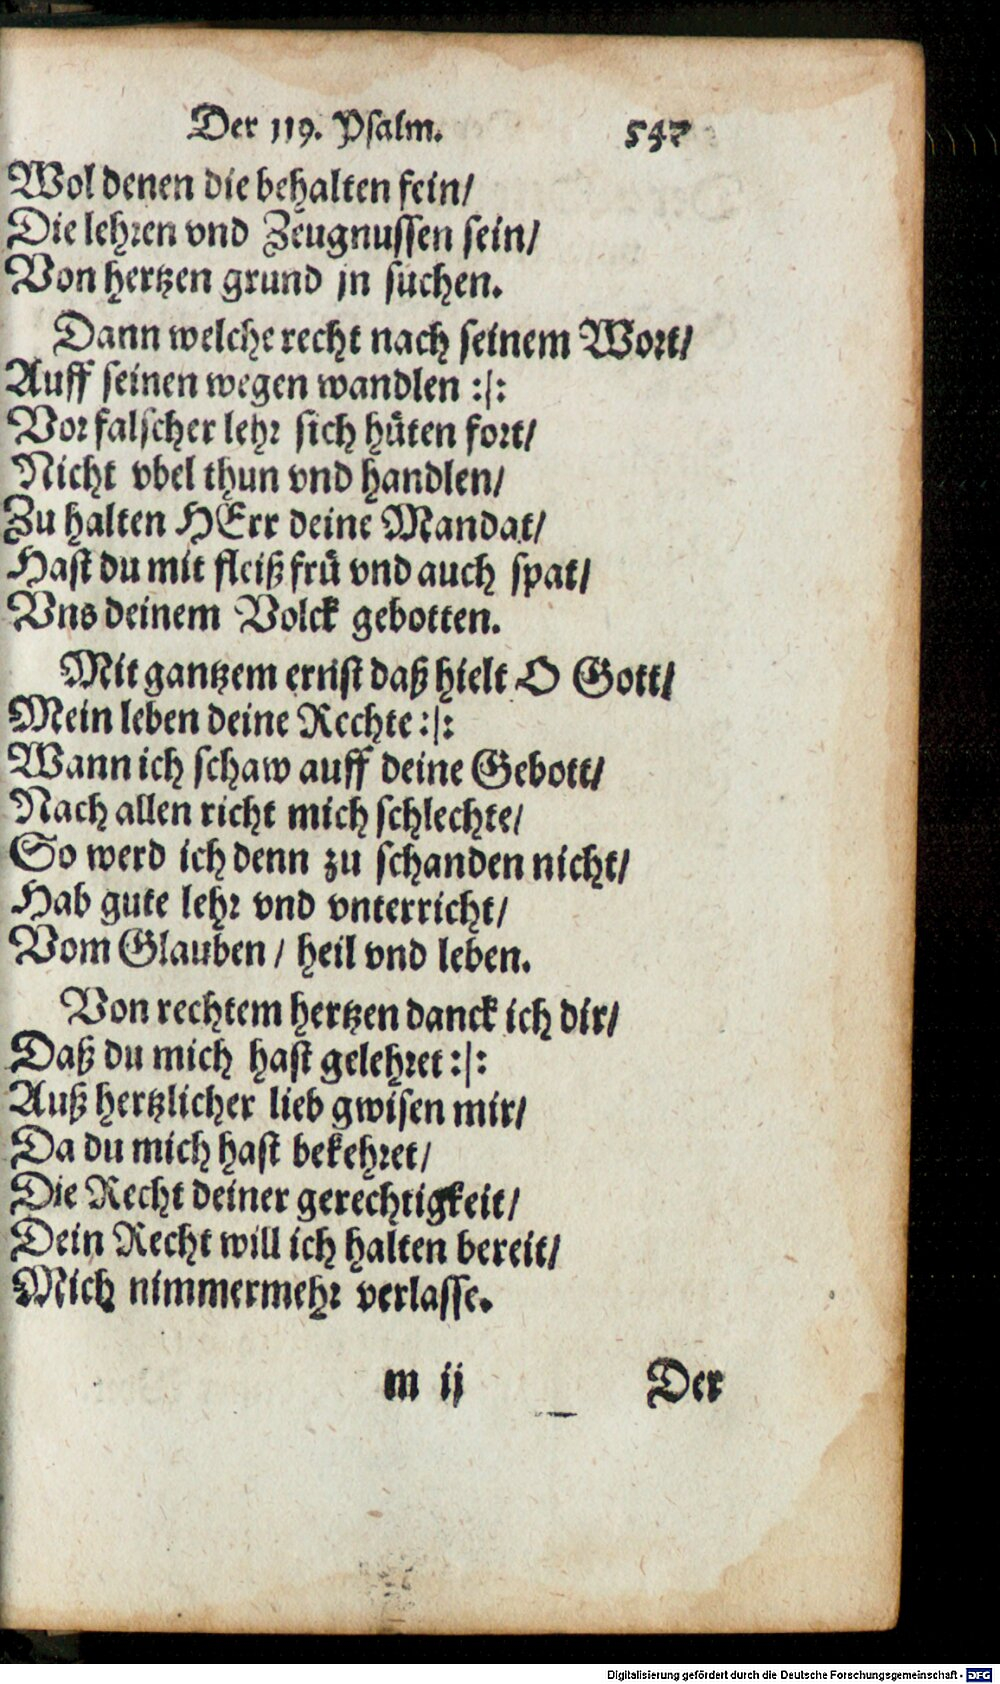 Der 119. Psalm. 547
Wol denen die behalten fein/
Die lehren vnd Zeugnussen sein/
Von hertzen grund jn suchen.
Dann welche recht nach seinem Wort/
Auff seinen wegen wandlen :|:
Vor falscher lehr sich hüten fort/
Nicht vbel thun vnd handlen/
Zu halten HErr deine Mandat/
Hast du mit fleiß frü vnd auch spat/
Vns deinem Volck gebotten.
Mit gantzem ernst daß hielt O Gott/
Mein leben deine Rechte :|:
Wann ich schaw auff deine Gebott/
Nach allen richt mich schlechte/
So werd ich denn zu schanden nicht/
Hab gute lehr vnd vnterricht/
Vom Glauben / heil vnd leben.
Von rechtem hertzen danck ich dir/
Daß du mich hast gelehret :|:
Auß hertzlicher lieb gwisen mir/
Da du mich hast bekehret/
Die Recht deiner gerechtigkeit/
Dein Recht will ich halten bereit/
Mich nimmermehr verlasse.
m ij Der
Digitalisierung gefördert durch die Deutsche Forschungsgemeinschaft - DFG